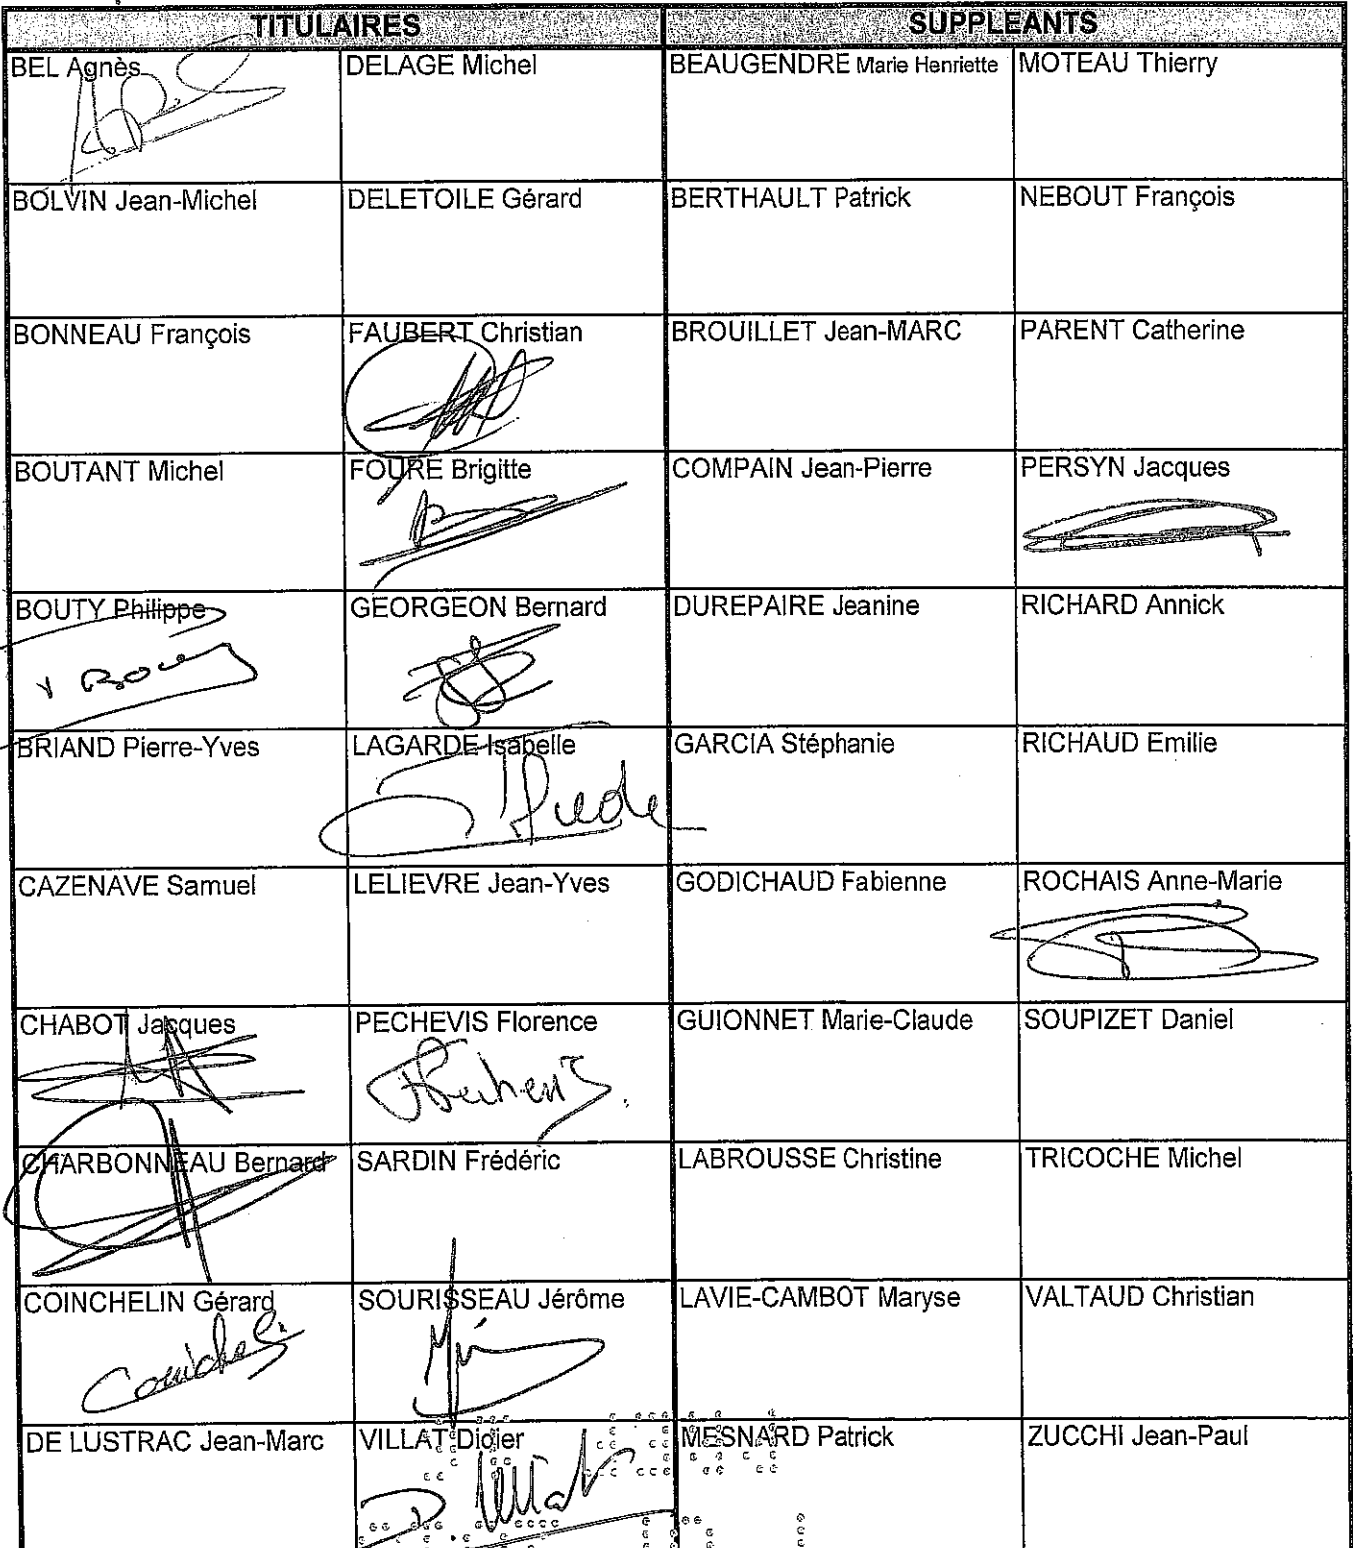 TITULAIRES SUPPLEANTS
BEL Agnès DELAGE Michel BEAUGENDRE Marie Henriette MOTEAU Thierry
BOLVIN Jean-Michel DELETOILE Gérard BERTHAULT Patrick NEBOUT François
BONNEAU François FAUBERT Christian BROUILLET Jean-MARC PARENT Catherine
BOUTANT Michel FOURE Brigitte COMPAIN Jean-Pierre PERSYN Jacques
BOUTY Philippe GEORGEON Bernard DUREPAIRE Jeanine RICHARD Annick
BRIAND Pierre-Yves LAGARDE Isabelle GARCIA Stéphanie RICHAUD Emilie
CAZENAVE Samuel LELIEVRE Jean-Yves GODICHAUD Fabienne ROCHAIS Anne-Marie
CHABOT Jacques PECHEVIS Florence GUIONNET Marie-Claude SOUPIZET Daniel
CHARBONNEAU Bernard SARDIN Frédéric LABROUSSE Christine TRICOCHE Michel
COINCHELIN Gérard SOURISSEAU Jérôme LAVIE-CAMBOT Maryse VALTAUD Christian
DE LUSTRAC Jean-Marc VILLAT Didier MESNARD Patrick ZUCCHI Jean-Paul
D. Villat